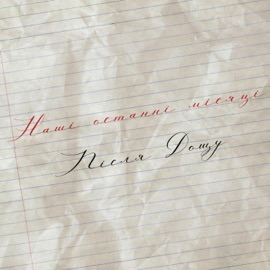 Наше останнє місяце
Після Дощу